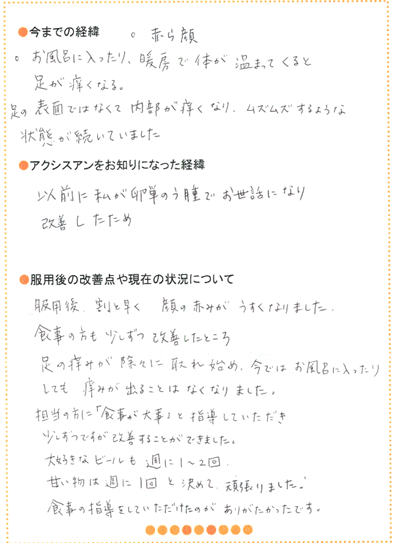 ●今までの経緯　○ 赤ら顔
○ お風呂に入ったり、暖房で体が温まってくると
足が痒くなる。
足の表面ではなくて内部が痒くなり、ムズムズするような
状態が続いていました
●アクシスアンをお知りになった経緯
以前に私が卵巣のう腫でお世話になり
改善したため
●服用後の改善点や現在の状況について
服用後、割と早く 顔の赤みがうすくなりました。
食事の方も少しずつ改善したところ
足の痒みが除々に取れ始め、今ではお風呂に入ったり
しても痒みが出ることはなくなりました。
担当の方に「食事が大事」と指導していただき
少しずつですが改善することができました。
大好きなビールも週に1〜2回、
甘い物は週に1回と決めて、頑張りました。
食事の指導をしていただけたのがありがたかったです。